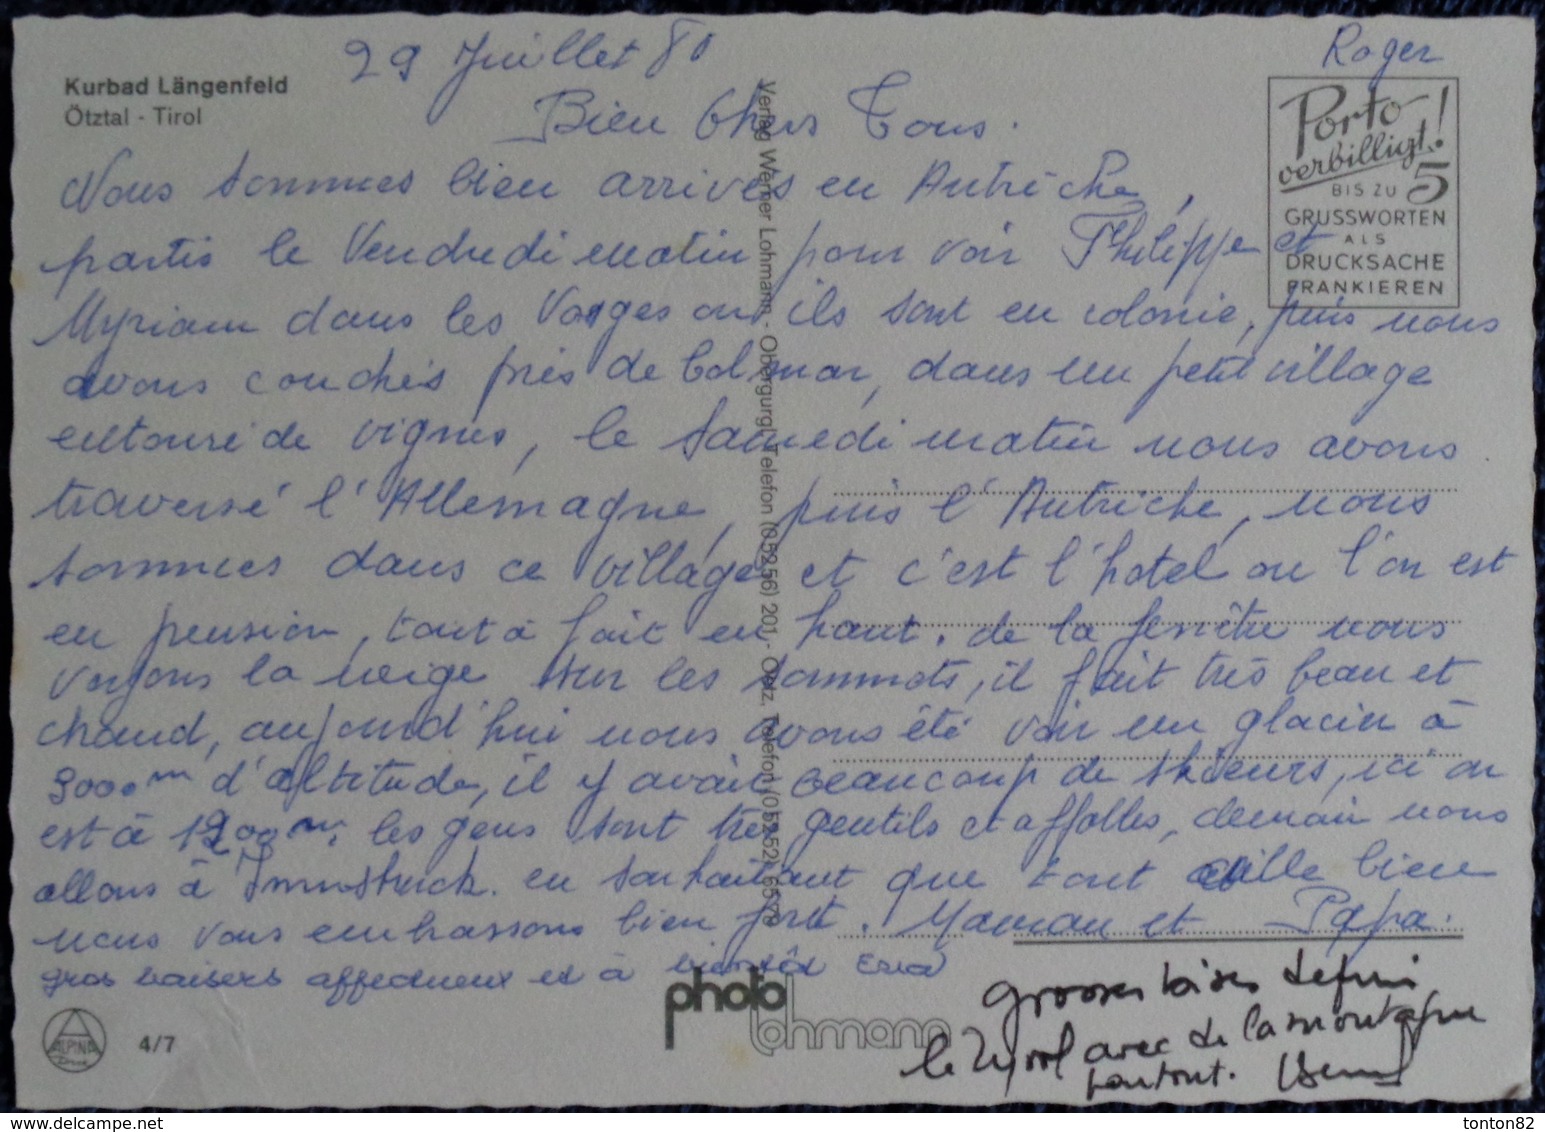 Kurbad Längenfeld
Ötztal - Tirol
29 Juillet 80
Roger
Porto
verbilligt!
BIS ZU 5
GRUSSWORTEN
ALS
DRUCKSACHE
FRANKIEREN
Bien Chers Tous.
Nous sommes bien arrivés en Autriche,
partis le Vendredi matin pour voir Philippe et
Myriam dans les Vosges ou ils sont en colonie, puis nous
avons couchés près de Colmar, dans un petit village
entouré de vignes, le Samedi matin nous avons
traversé l'Allemagne, puis l'Autriche, nous
sommes dans ce village et c'est l'hotel ou l'on est
en pension, tout à fait en haut. de la fenêtre nous
voyons la neige sur les sommets, il fait très beau et
chaud, aujourd'hui nous avons été voir un glacier à
3000m d'altitude, il y avait beaucoup de skieurs, ici on
est à 1200m, les gens sont très gentils et affolles, demain nous
allons à Innsbruck. en souhaitant que tout aille bien
nous vous embrassons bien fort. Maman et Papa.
gros baisers affectueux et à bientôt
grosses bises depuis
le Tyrol avec de la montagne
partout.
Verlag Werner Lohmann - Obergurgl, Telefon (05256) 201 - Oetz, Telefon (05252) 6579
photo
lohmann
ALPINA
4/7
tonton82